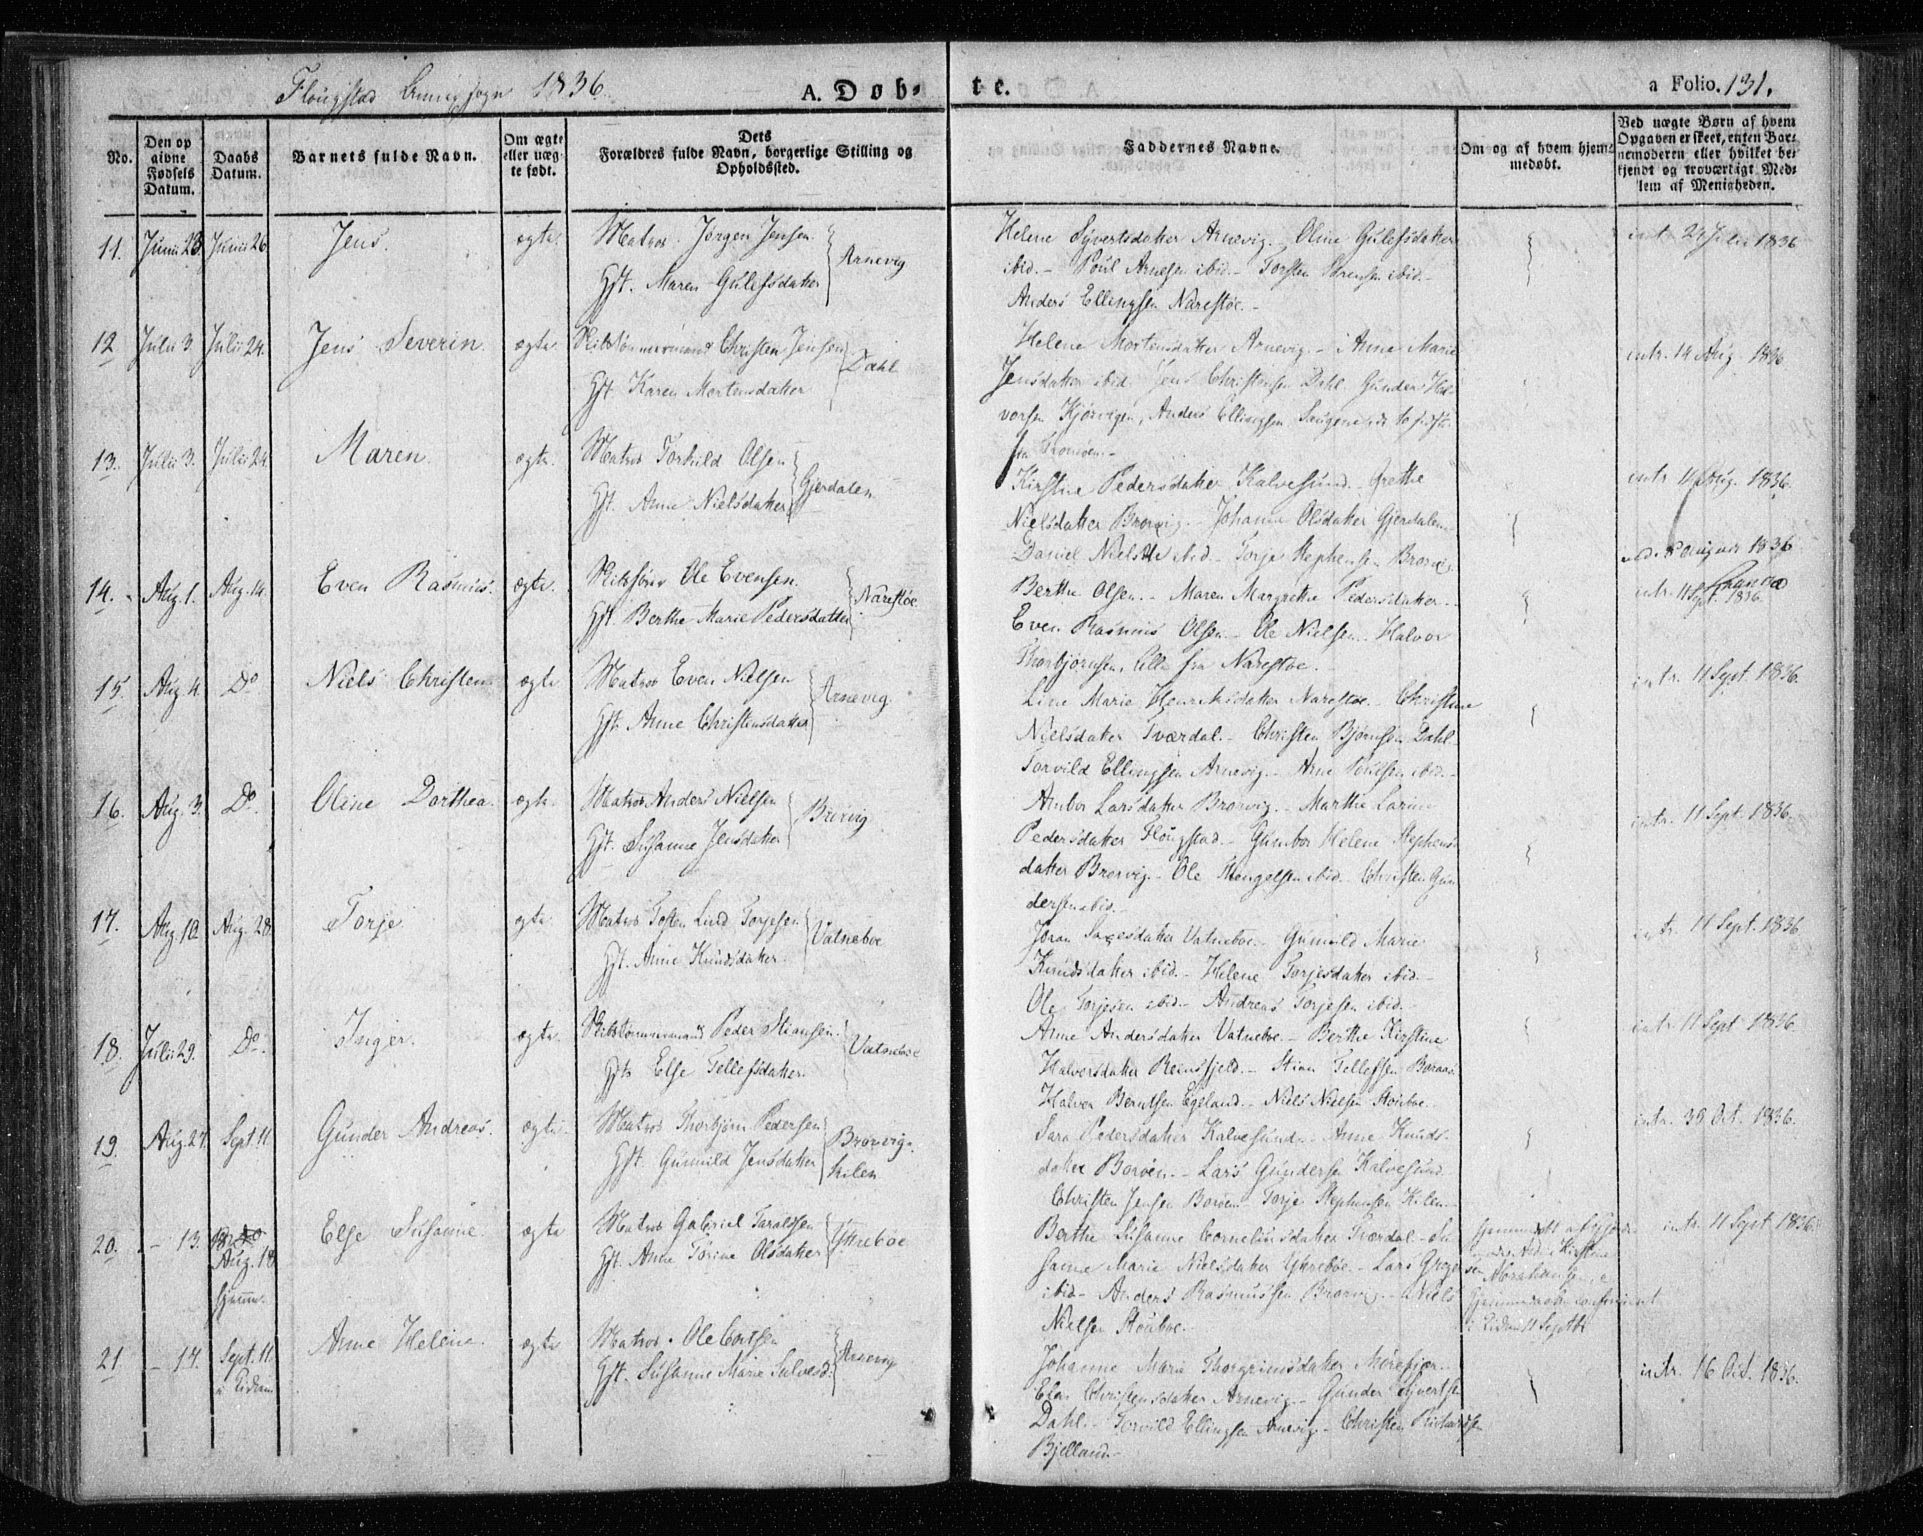 Flougstad Annexsogn 1836. A. Døb-te. a Folio. 131.
No. | Den opgivne Fødsels Datum. | Daabs Datum. | Barnets fulde Navn. | Om ægte eller uægte født. | Dets Forældres fulde Navn, borgerlige Stilling og Opholdssted. | Faddernes Navne. | Om og af hvem hjemmedøbt. | Ved uægte Børn af hvem Opgaven er skeet, enten Barnemoderen eller hvilket bekjendt og troværdigt Medlem af Menigheden.
11. Junii 23. Junii 26. Jens. ægte. Matros Jørgen Jensen
Gft. Maren Gulefsdatter Arnevig
Helene Syvertsdatter Arnevig. Oline Gulefsdatter
ibid. - Poul Arnesen ibid. - Torsten Sørensen ibid. -
Anders Ellingsen Narestøe. -
intr. 24 Julii 1836
12 Julii 3. Julii 24. Jens Severin. ægte. Skibstømmermand Christen Jensen
Gft. Karen Mortensdatter Dahl
Helene Mortensdatter Arnevig. - Anne Marie
Jensdatter ibid. Jens Christensen Dahl. Gunder Hal-
vorsen Kjørvigen, Anders Ellingsen
fra Tromøen. -
intr. 14 Aug. 1836
13. Julii 3. Julii 24. Maren. ægte. Matros Torkild Olsen
Gft. Anne Nielsdatter Gjerdalen
Kirstine Pedersdatter Kalvesund. Grethe
Nielsdatter Brovig. - Johanne Olsdatter Gjerdalen
Daniel Nielsen ibid - Torje Stephensen Brovig.
intr. 14 Aug. 1836.
14. Aug. 1. Aug. 14. Even Rasmus. ægte. Skibsfører Ole Evensen.
Gft. Berthe Marie Pedersdatter Narestøe
Berthe Olsen. - Maren Margrethe Pedersdatter. -
Even Rasmus Olsen - Ole Nielsen - Halvor
Thorbjørnsen. Alle fra Narestøe.
intr. 11 Sept. 1836.
15. Aug 4. Do Niels Christen ægte Matros Even Nielsen
Gft. Anne Christensdatter Arnevig
Line Marie Henriksdatter Narestøe. - Christine
Nielsdatter Tværdal. - Christen Bjørnsen Dahl -
Torvild Ellingsen Arnevig. - Arne Poulsen ibid. -
intr. 11 Sept. 1836.
16. Aug. 3. Do. Oline Dorthea. ægte. Matros Anders Nielsen
Gft. Susanne Jensdatter Brovig
Anbor Larsdatter Brovig. - Marthe Larine
Pedersdatter Flougstad. - Gunbor Helene Stephens-
datter Brovig. - Ole Stengelsen ibid - Christen Gun
dersen ibid. -
intr. 11 Sept. 1836.
17. Aug. 10. Aug. 28. Torje. ægte. Matros Tosten Lund Torjesen
Gft. Anne Knudsdatter. Vatneboe
Joran Saxesdatter Vatneboe. - Gunild Marie
Knudsdatter ibid. - Helene Torjesdatter ibid. -
Ole Torjesen ibid. - Andreas Torjesen ibid. -
intr. 11 Sept. 1836.
18. Julii 29. Do. Inger. ægte. Skibstømmermand Peder Stiansen
Gft. Else Tellefsdatter Vatneboe
Anne Andersdatter Vatneboe. - Berthe Kirstine
Halvorsdatter Reensfjeld. - Stian Tellefsen Boraas.
Halvor Berntsen Egeland. - Niels Nielsen Støleboe.
intr. 11 Sept 1836.
19. Aug 27. Sept. 11 Gunder Andreas. ægte. Matros Thorbjørn Pedersen
Gft. Gunuld Jensdatter Brovig-
kilen
Sara Pedersdatter Kalvesund. - Anne Knuds-
datter Borøen. - Lars Gundersen Kalvesund
Christen Jensen Borøen. Torje Stephensen Kilen -
intr. 30 Oct. 1836.
20. - 13. Aug. 18 hjemme. Else Susanne. ægte Matros Gabriel Taraldsen
Gft. Anne Torine Olsdatter Yttreboe
Berthe Susanne Corneliusdatter Tværdal - Su
sanne Marie Nielsdatter Yttreboe. - Lars Greger sen
ibid - Anders Rasmussen Brovig. - Niels
Nielsen Støleboe. -
Hjemmedøbt af
Kirstine
Abrahamsen
Hjemmedaab confirmeret
i Eidam 11 Septbr
intr. 11 Sept. 1836.
21 - 17. Sept. 11 i Eidam Anne Helene. ægte Matros. Ole
Gft. Susanne Marie Salvesd: Arnevig
Johanne Marie Thorgrimsdatter Mørefjær. -
Elen Christensdatter Arnevig. - Gunder Syvertsen
Dahl. - Torvild Ellingsen Arnevig. - Christen Richardsen
Bjelland -
intr. 16 Oct. 1836.